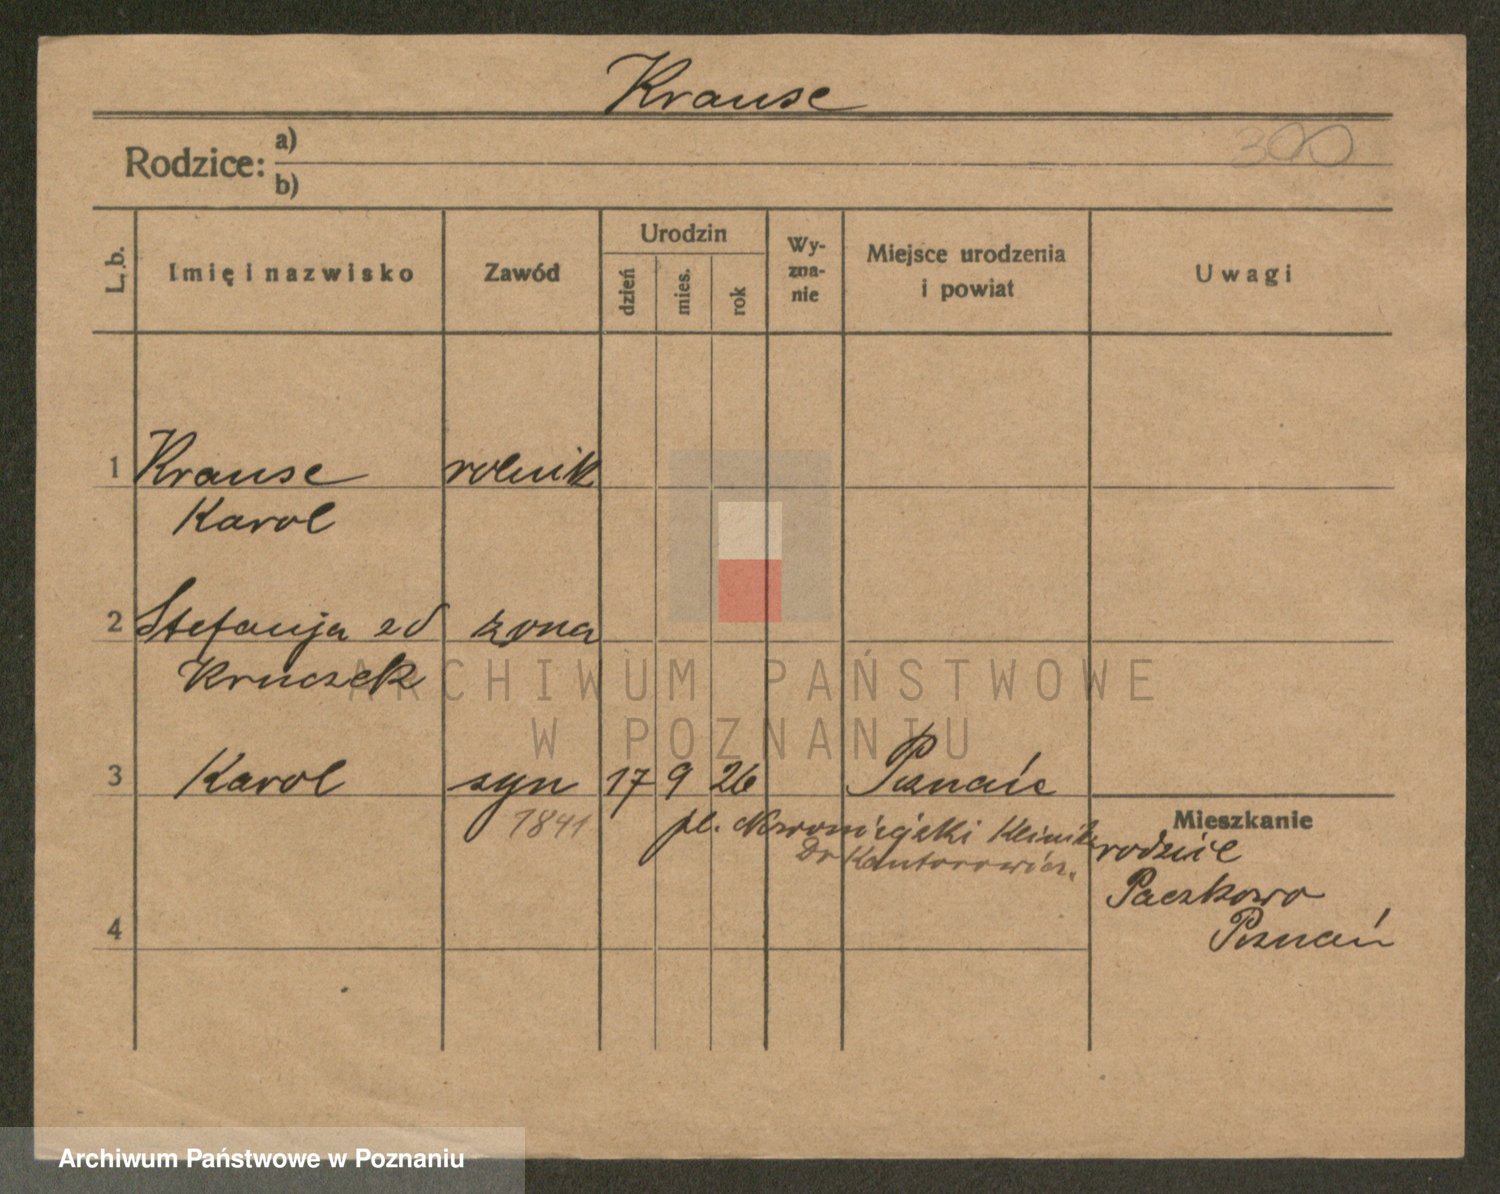 Krause
300
Rodzice:
a)
b)
L. b.
Imię i nazwisko
Zawód
Urodzin
dzień
mies.
rok
Wy-
zna-
nie
Miejsce urodzenia
i powiat
Uwagi
1 Krause rolnik
Karol
2 Stefanja zd żona
Kruczek
3 Karol syn 17 9 26 Poznań
1841
pl. Nowomiejski Klinika
Dr Kantorowicz.
Mieszkanie
rodzice
Paczkowo
Poznań
4
ARCHIWUM PAŃSTWOWE
W POZNANIU
Archiwum Państwowe w Poznaniu